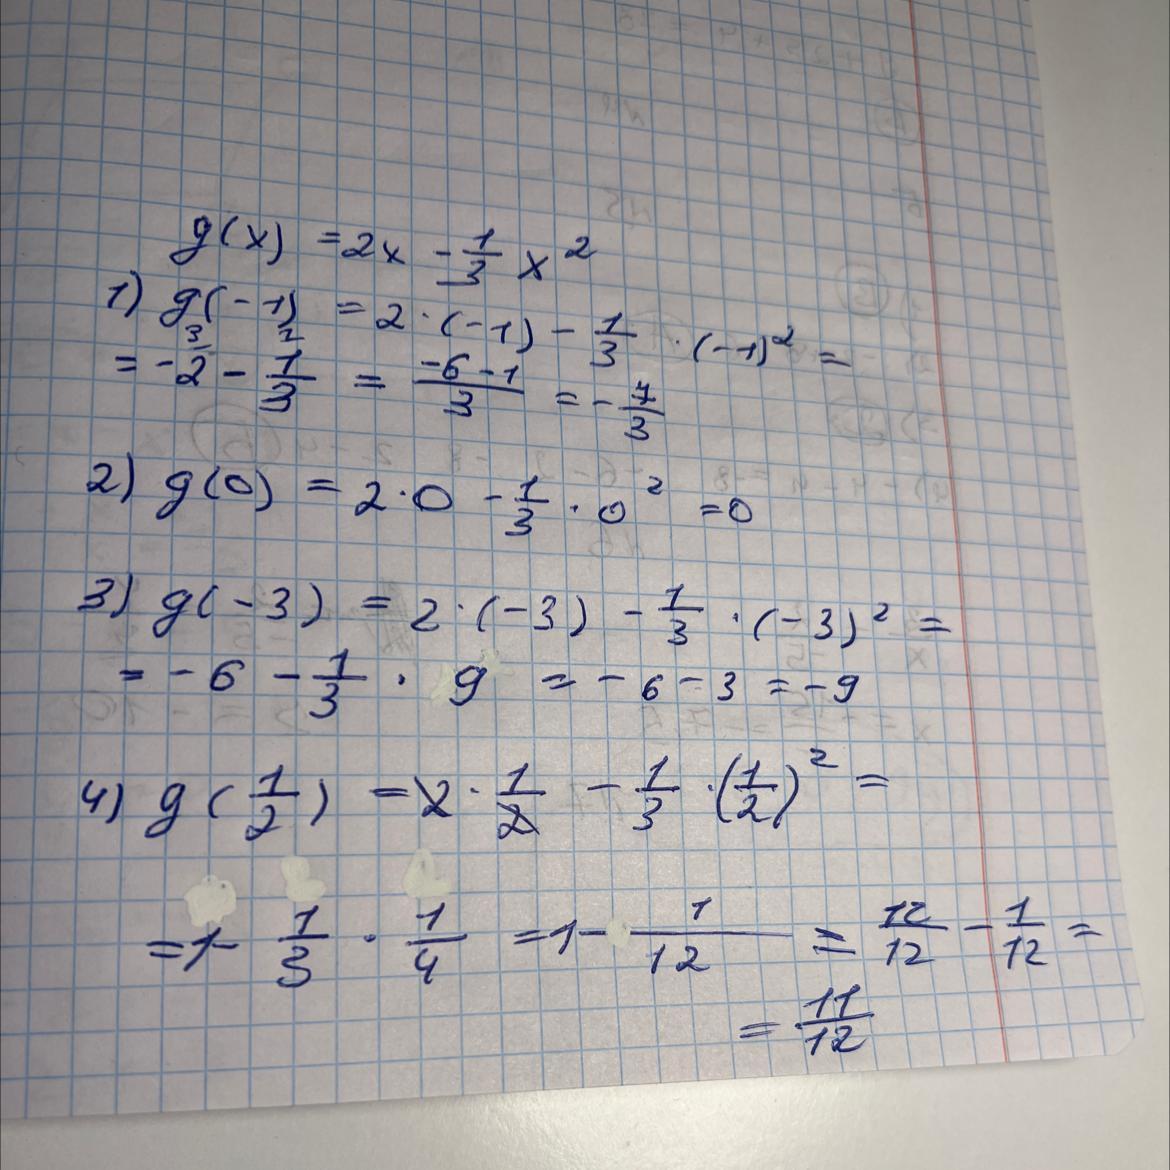 g(x) = 2x - 1/3 x²
1) g(-1) = 2 · (-1) - 1/3 · (-1)² =
= -2 - 1/3 = (-6-1)/3 = -7/3
2) g(0) = 2·0 - 1/3 · 0² = 0
3) g(-3) = 2·(-3) - 1/3 · (-3)² =
= -6 - 1/3 · 9 = -6-3 = -9
4) g(1/2) = 2 · 1/2 - 1/3 · (1/2)² =
= 1 - 1/3 · 1/4 = 1 - 1/12 = 12/12 - 1/12 =
= 11/12